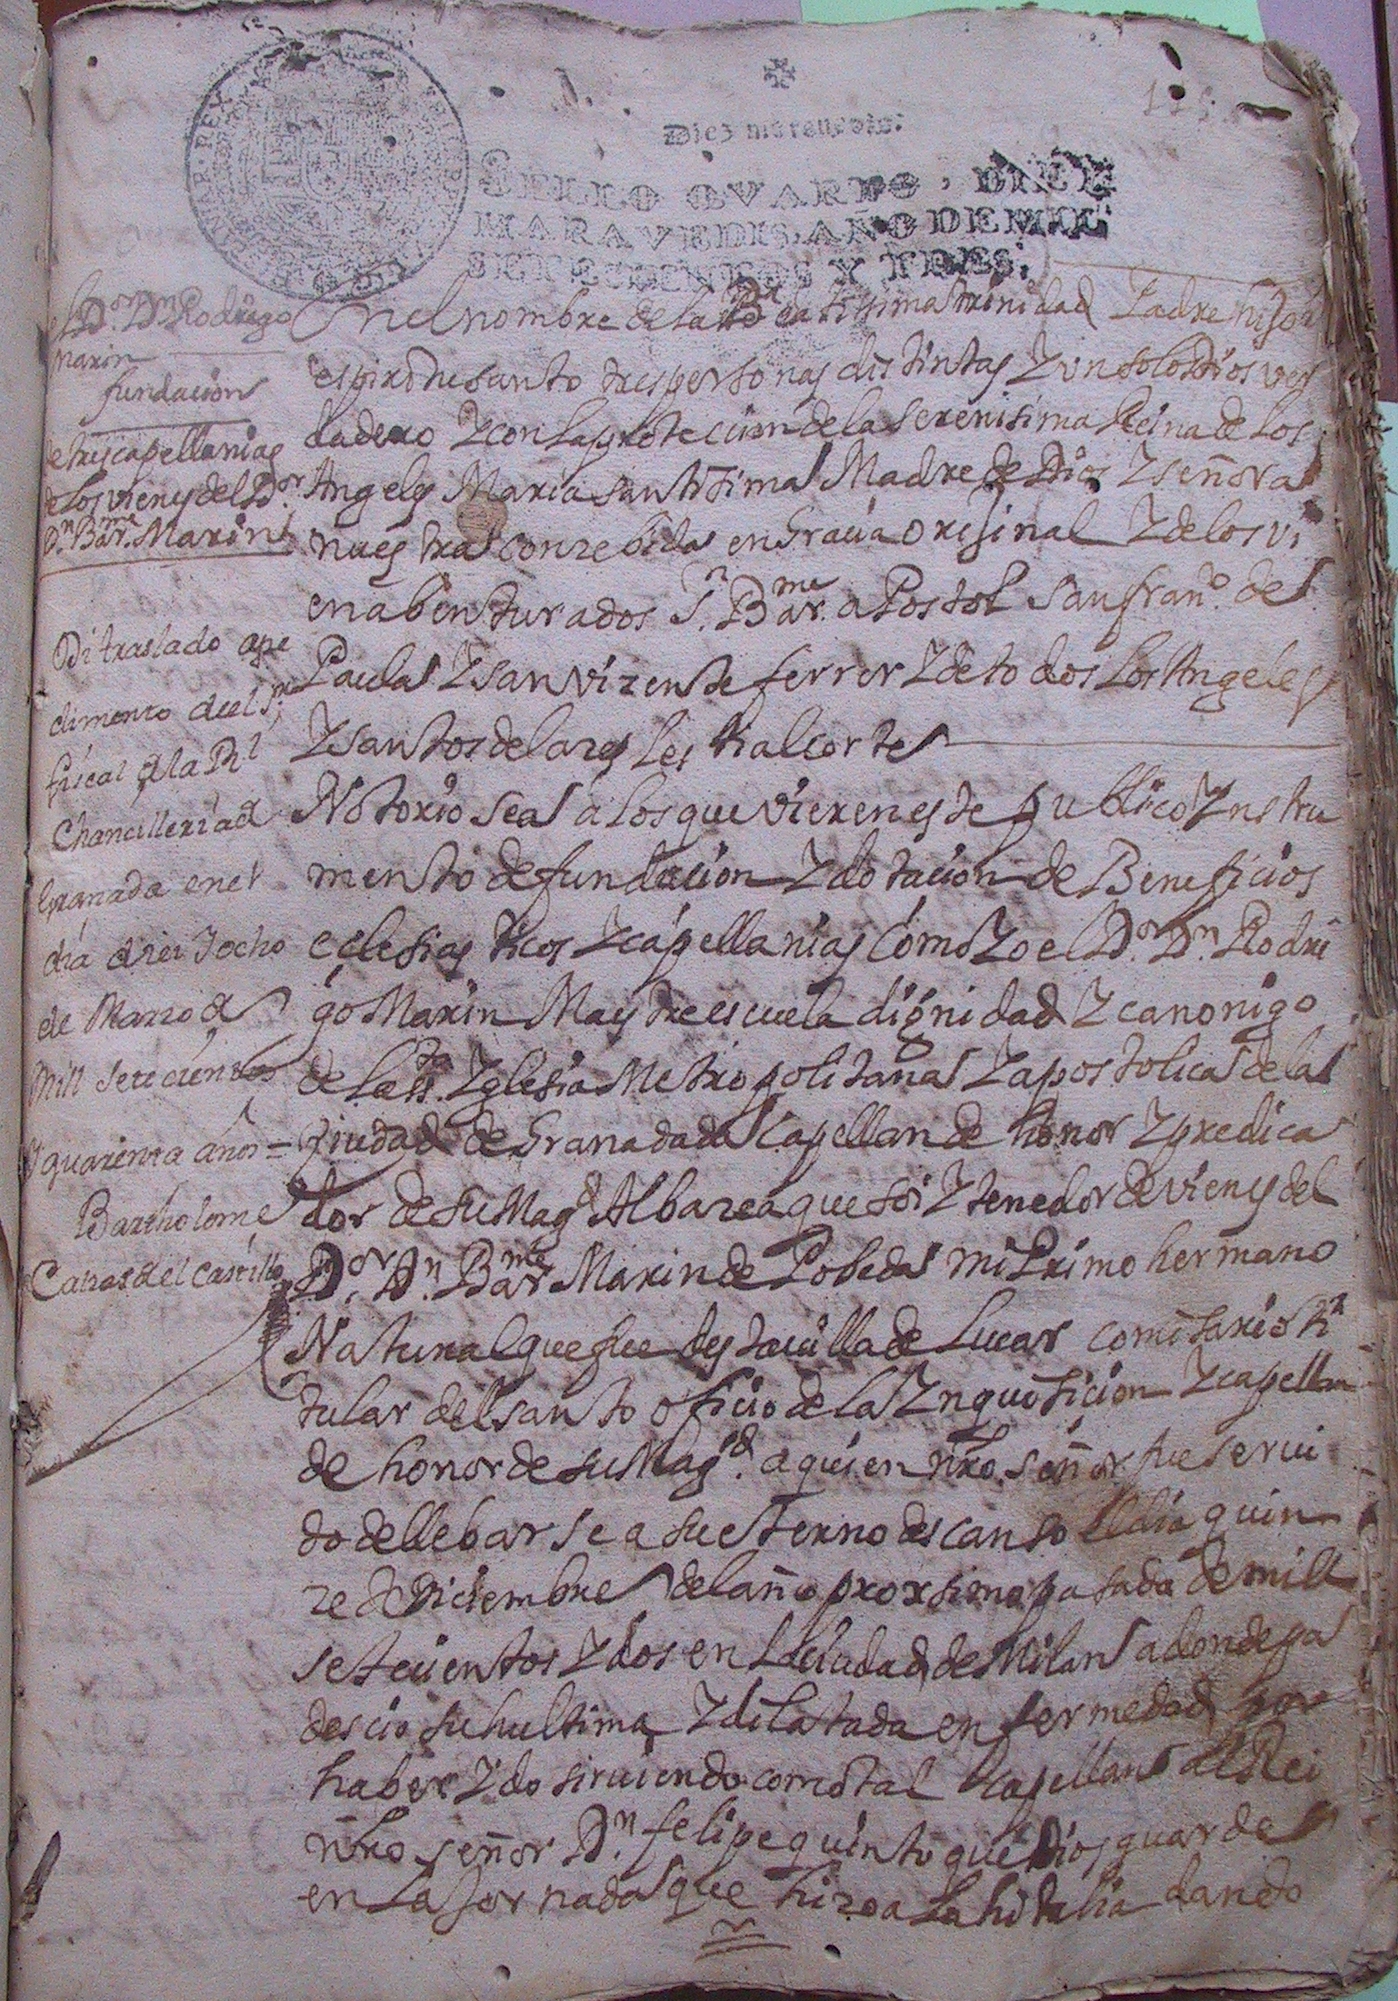 115
Diez maravedis.
SELLO QVARTO, DIEZ
MARAVEDIS, AÑO DE MIL
SETECIENTOS Y TRES.
el Dor. Dn Rodrigo
Marin
fundacion
de tres capellanias
de los vienes del Dor
Dn. Barme. Marin
Di traslado a pe
dimento de el Sr.
fiscal de la Rl
Chancilleria de
Granada en el
dia diez y ocho
de Marzo de
mill setecientos
y quarenta años =
Bartholome
Cañas del Castillo
En el nombre de la Beatissima trinidad Padre hijo i
espiritu santo tres personas distintas Y un solo Dios ver
dadero Y con la protecion de la serenisima Reina de los
Angeles Maria santisima Madre de Dios Y señora
nuestra conzebida en Gracia orijinal Y de los vi
enabenturados Sn. Barme. apostol san frano. de
Paula Y san vizente ferrer Y de todos los Angeles
Y santos de la zelestial corte
Notorio sea a los que vieren este publico Ynstru
mento de fundacion Y dotacion de Beneficios
eclesiasticos Y capellanias como Yo el Dor. Dn. Rodri
go Marin Maestre escuela dignidad Y canonigo
de la sta. Yglesia Metropolitana Y apostolica de la
ziudad de Granada Capellan de honor Y predica
dor de su Magd. Albazea que soi Y tenedor de vienes del
Dor. Dn. Barme. Marin de Pobeda mi Primo hermano
Natural que fue desta villa de Lucar comisario ti
tular del santo oficio de la Ynquisicion Y capellan
de honor de su Magd. a quien nro. señor fue servi
do de llebarse a su eterno descanso el dia quin
ze de Diciembre del año proximo pasado de mill
setecientos Y dos en la ciudad de Milan a donde pa
descio su hultima Y dilatada enfermedad por
haber Ydo sirviendo como tal capellan al Rei
nro señor Dn. felipe quinto que Dios guarde
en la jornada que hizo a la hitalia dando